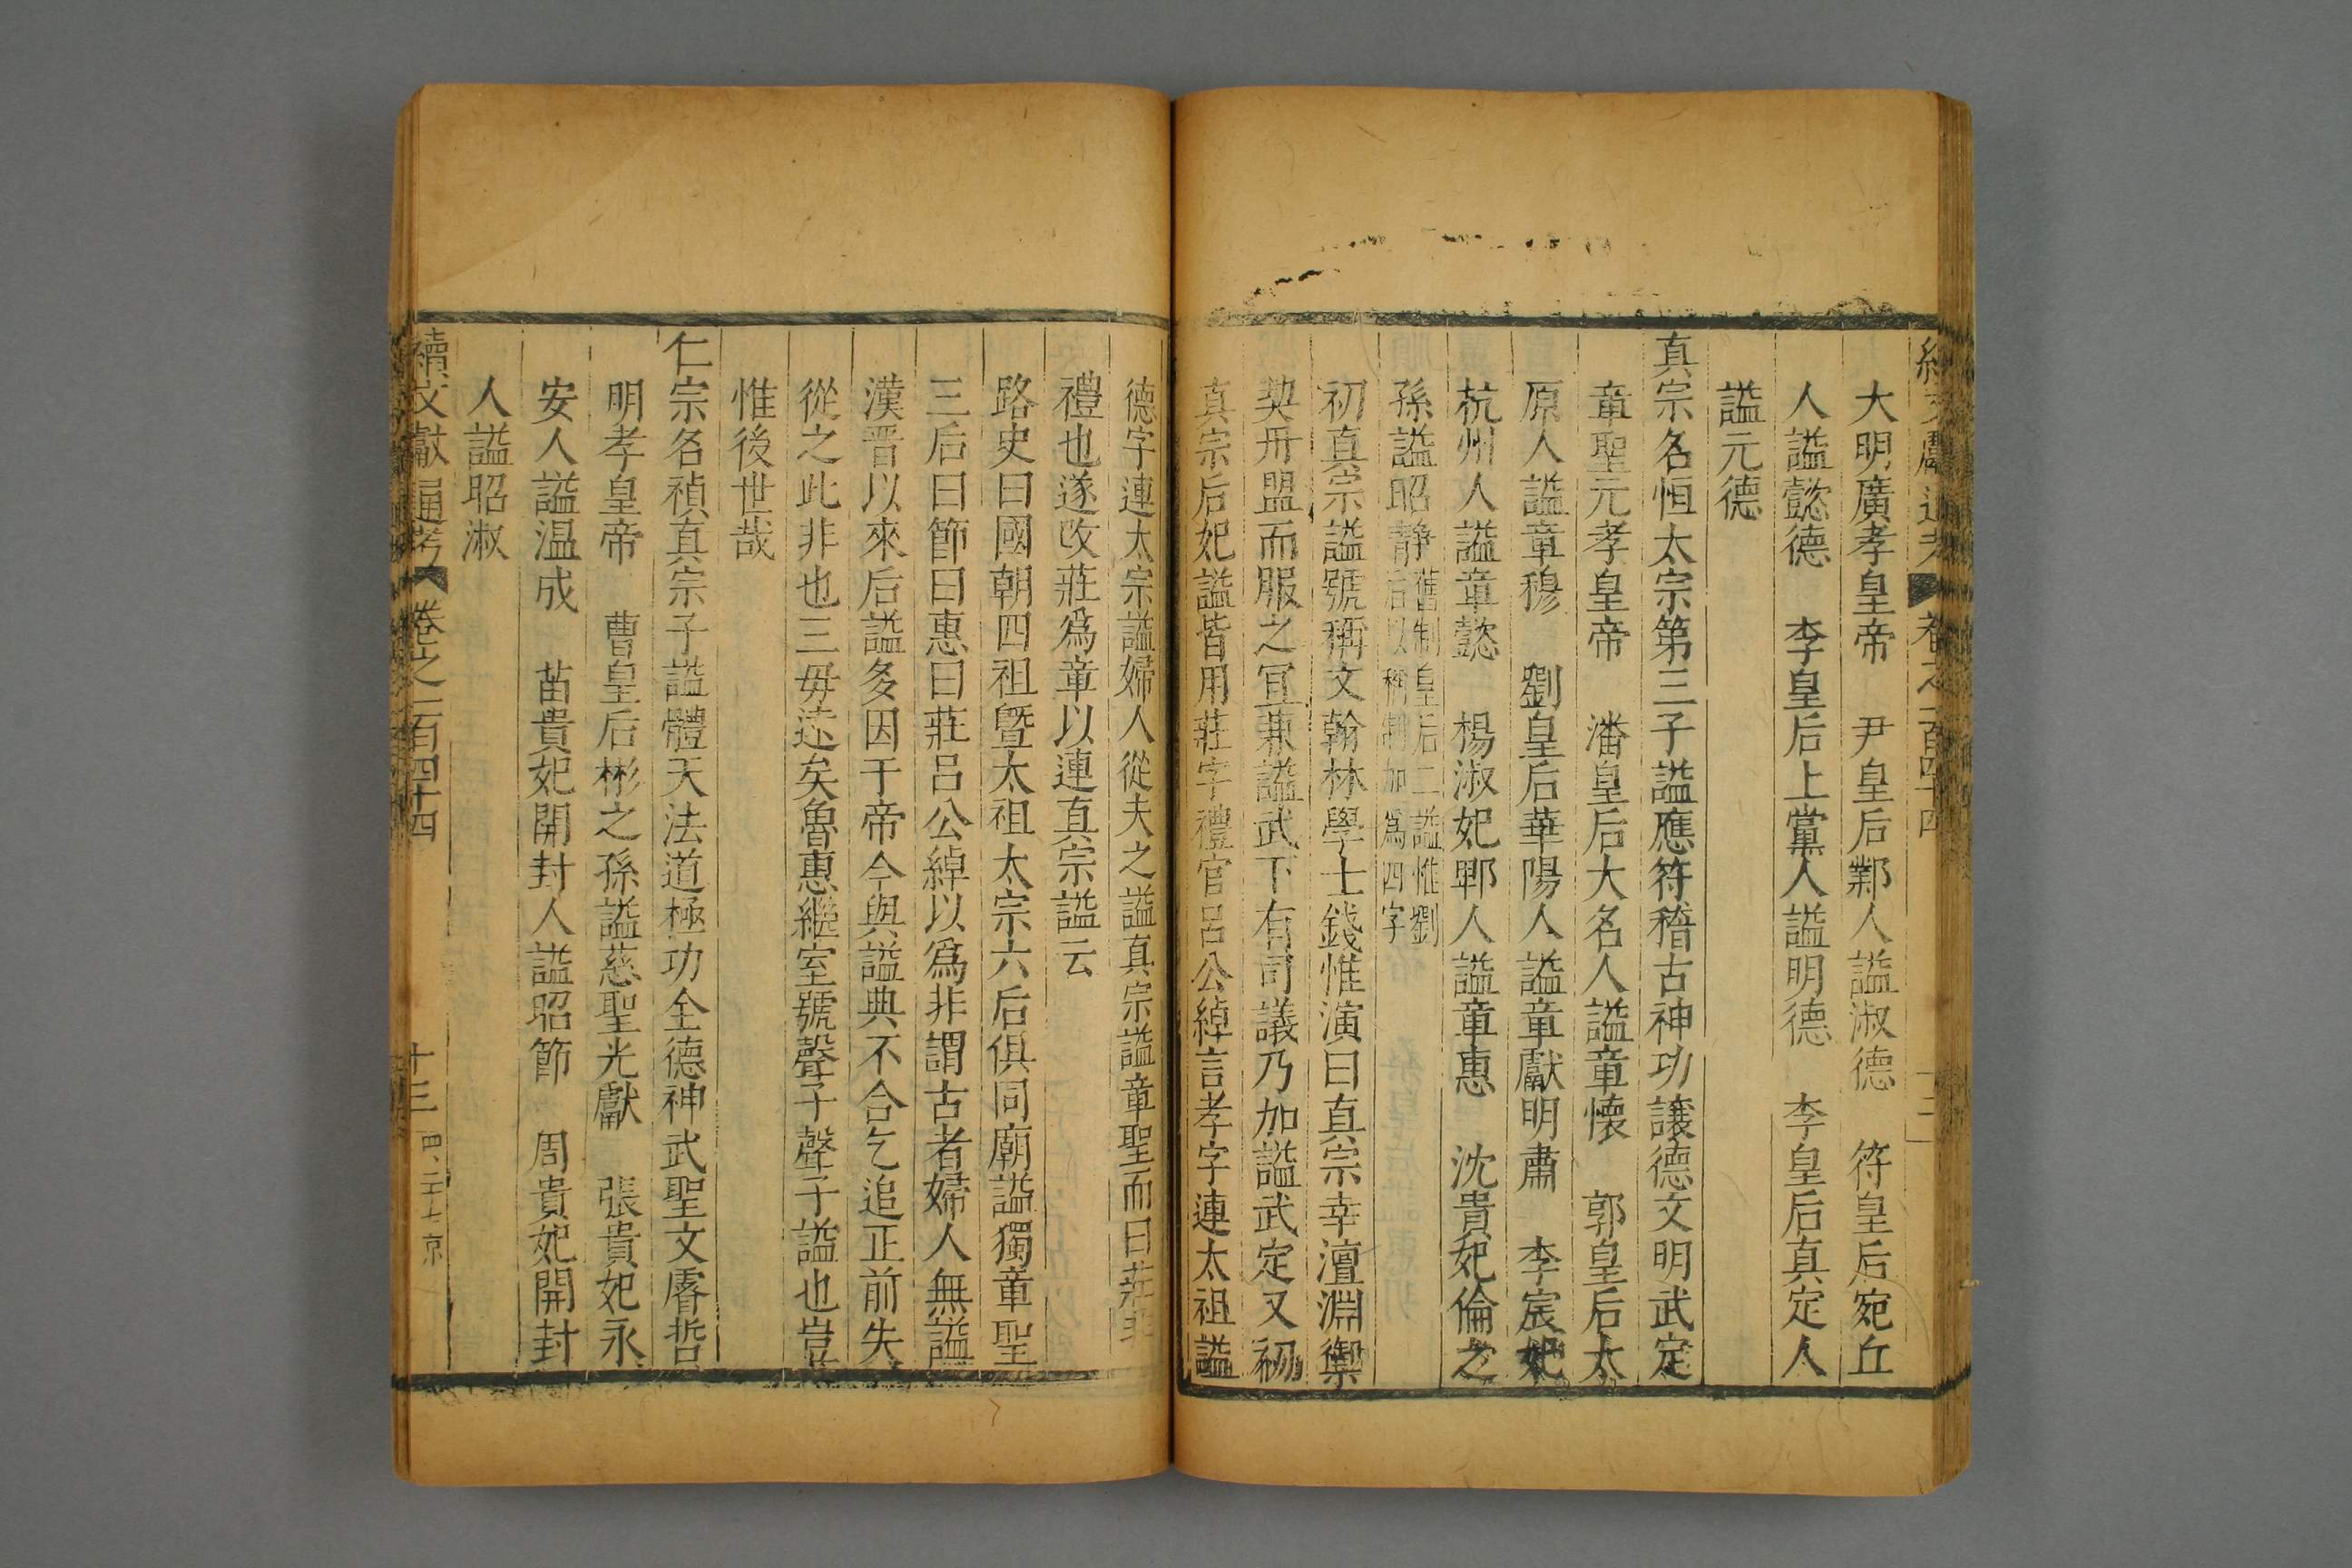 大明廣孝皇帝　尹皇后鄴人謚淑德　符皇后宛丘
人謚懿德　李皇后上黨人謚明德　李皇后真定人
謚元德
真宗名恒太宗第三子謚應符稽古神功讓德文明武定
章聖元孝皇帝　潘皇后大名人謚章懷　郭皇后太
原人謚章穆　劉皇后華陽人謚章獻明肅　李宸妃
杭州人謚章懿　楊淑妃郫人謚章惠　沈貴妃倫之
孫謚昭静舊制皇后二謚惟劉后以稱制加爲四字
初真宗謚號稱文翰林學士錢惟演曰真宗幸澶淵禦
契丹盟而服之宜兼謚武下有司議乃加謚武定又初
真宗后妃謚皆用莊字禮官呂公綽言孝字連太祖謚
德字連太宗謚婦人從夫之謚真宗謚章聖而曰莊非
禮也遂改莊爲章以連真宗謚云
路史曰國朝四祖暨太祖太宗六后俱同廟謚獨章聖
三后曰節曰惠曰莊呂公綽以爲非謂古者婦人無謚
漢晋以來后謚多因于帝今與謚典不合乞追正前失
從之此非也三毋遠矣魯惠繼室號聲子聲子謚也豈
惟後世哉
仁宗名禎真宗子謚體天法道極功全德神武聖文睿哲
明孝皇帝　曹皇后彬之孫謚慈聖光獻　張貴妃永
安人謚温成　苗貴妃開封人謚昭節　周貴妃開封
人謚昭淑
續文獻通考　卷之一百四十四　十三　四二十七京